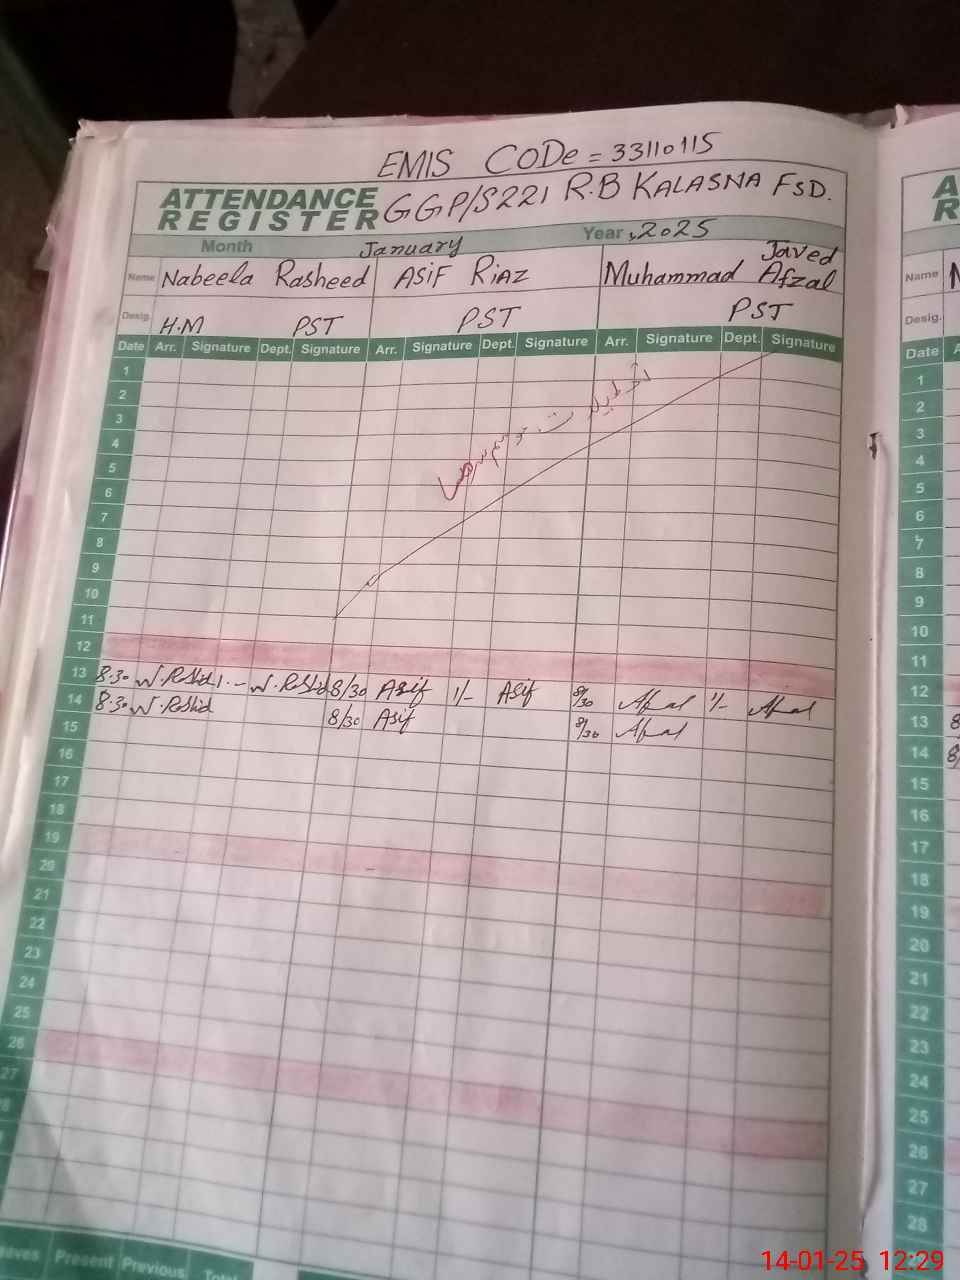 EMIS CODe = 33110115
ATTENDANCE REGISTER GGP/S221 R.B KALASNA FSD.
Month January Year, 2025
Name Nabeela Rasheed ASIF RIAZ Muhammad Javed Afzal
Desig. H.M PST PST PST
Date Arr. Signature Dept. Signature Arr. Signature Dept. Signature Arr. Signature Dept. Signature
1
2
تعطیلات موسم سرما
3
4
5
6
7
8
9
10
11
12
13 8.30 N.Rashid 1.- N.Rashid 8/30 Asif 1/- Asif 8/30 Afzal 1/- Afzal
14 8.30 N.Rashid 8/30 Asif 8/30 Afzal
15
16
17
18
19
20
21
22
23
24
25
26
27
Present Previous Total
A
R
Name
Desig.
Date
1
2
3
4
5
6
7
8
9
10
11
12
13 8
14 8/
15
16
17
18
19
20
21
22
23
24
25
26
27
28
14-01-25 12:29